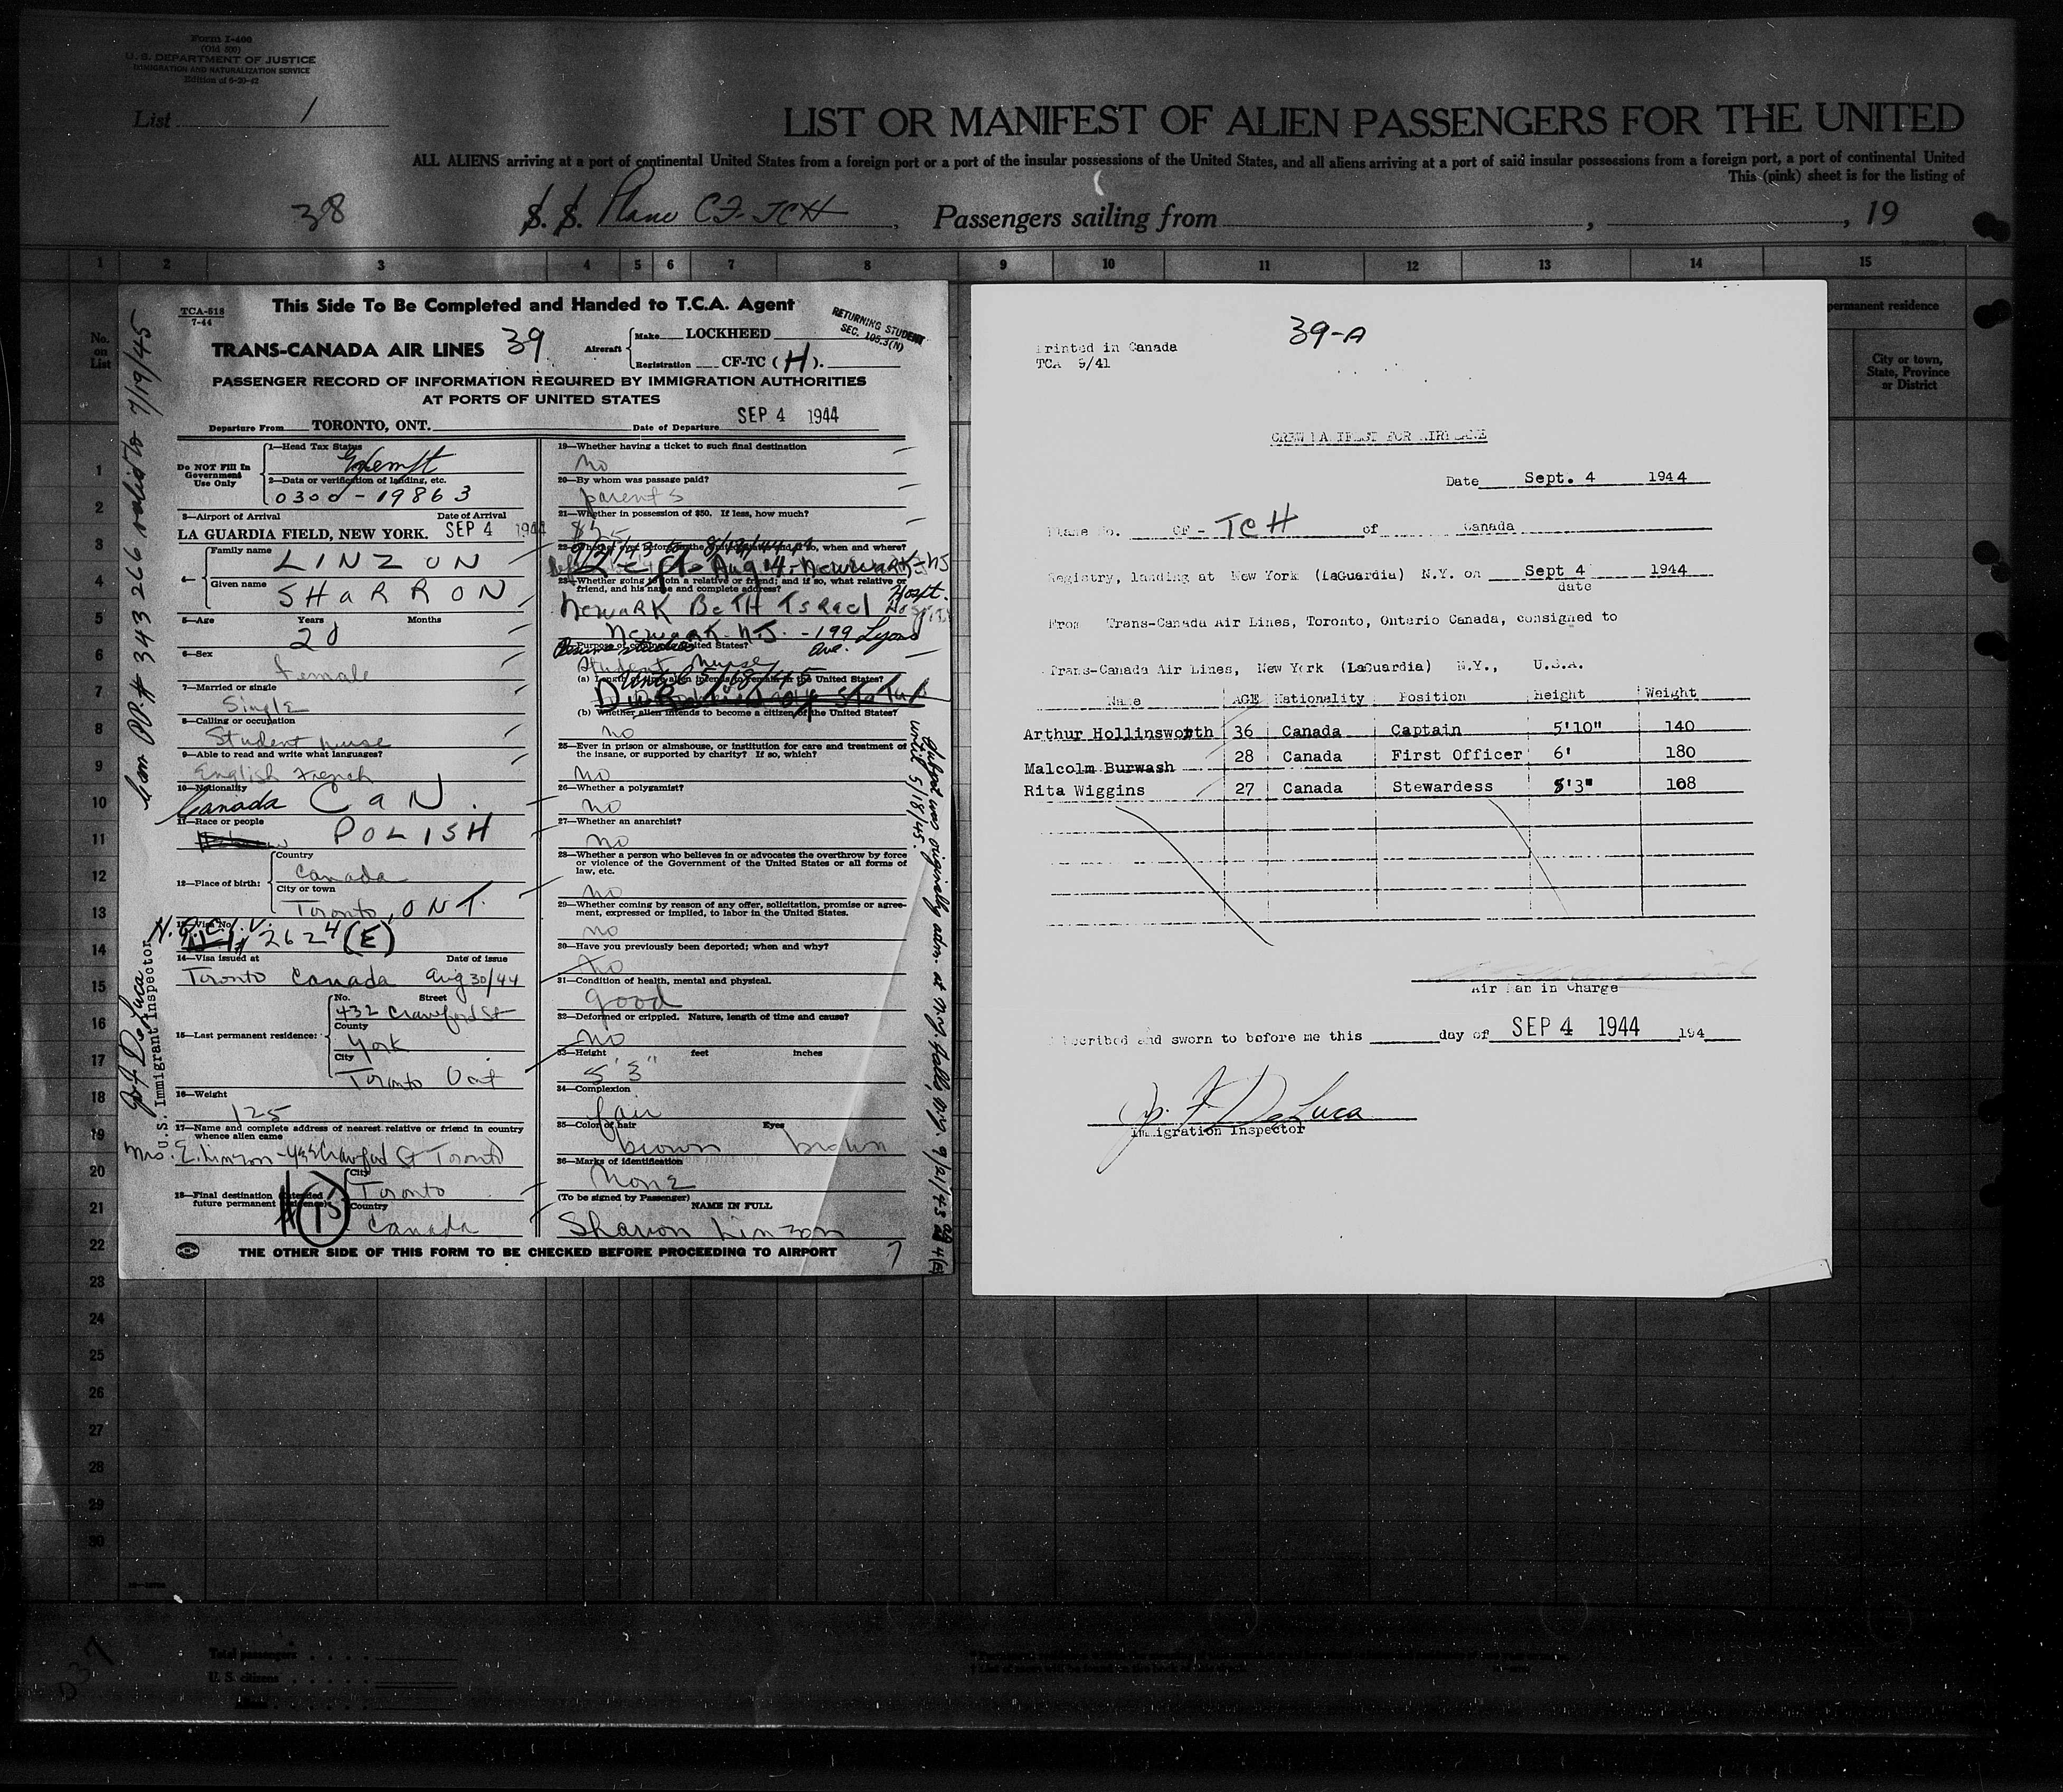 Form I-400
(Old 500)
U. S. DEPARTMENT OF JUSTICE
IMMIGRATION AND NATURALIZATION SERVICE
Edition of 6-20-42
List 1
LIST OR MANIFEST OF ALIEN PASSENGERS FOR THE UNITED
ALL ALIENS arriving at a port of continental United States from a foreign port or a port of the insular possessions of the United States, and all aliens arriving at a port of said insular possessions from a foreign port, a port of continental United
This (pink) sheet is for the listing of
38 S. S. Plane CF-TCH, Passengers sailing from , , 19
1 2 3 4 5 6 7 8 9 10 11 12 13 14 15
No. on List
permanent residence
City or town, State, Province or District
1
2
3
4
5
6
7
8
9
10
11
12
13
14
15
16
17
18
19
20
21
22
23
24
25
26
27
28
29
30
Total passengers
U. S. citizens
TCA-518
7-44
This Side To Be Completed and Handed to T.C.A. Agent
RETURNING STUDENT
SEC. 105.3(N)
TRANS-CANADA AIR LINES 39
Aircraft Make LOCKHEED
Registration CF-TC (H).
PASSENGER RECORD OF INFORMATION REQUIRED BY IMMIGRATION AUTHORITIES
AT PORTS OF UNITED STATES
Departure From TORONTO, ONT. Date of Departure SEP 4 1944
Do NOT Fill In Government Use Only
1—Head Tax Status
Exempt
2—Data or verification of landing, etc.
0300-19863
3—Airport of Arrival Date of Arrival
LA GUARDIA FIELD, NEW YORK. SEP 4 1944
4— Family name LINZON
Given name SHARRON
5—Age Years Months
20
6—Sex
female
7—Married or single
Single
8—Calling or occupation
Student nurse
9—Able to read and write what languages?
English French
10—Nationality
Canada CAN.
11—Race or people
POLISH
12—Place of birth: Country
Canada
City or town
Toronto, ONT.
2624 (E)
14—Visa issued at Date of issue
Toronto Canada Aug 30/44
15—Last permanent residence: No. Street
432 Crawford St
County
York
City
Toronto Ont
16—Weight
125
17—Name and complete address of nearest relative or friend in country whence alien came
Mrs. E. Linzon - 432 Crawford St Toronto
18—Final destination (intended future permanent residence)
City
Toronto
Country
Canada
19—Whether having a ticket to such final destination
no
20—By whom was passage paid?
parents
21—Whether in possession of $50. If less, how much?
$25
Newark-NJ
23—Whether going to join a relative or friend; and if so, what relative or friend, and his name and complete address?
Newark Beth Israel Hospt.
Newark N.J. - 199 Lyons Ave.
Student nurse
(a) Length of time alien intends to remain in the United States?
(b) Whether alien intends to become a citizen of the United States?
no
25—Ever in prison or almshouse, or institution for care and treatment of the insane, or supported by charity? If so, which?
no
26—Whether a polygamist?
no
27—Whether an anarchist?
no
28—Whether a person who believes in or advocates the overthrow by force or violence of the Government of the United States or all forms of law, etc.
no
29—Whether coming by reason of any offer, solicitation, promise or agreement, expressed or implied, to labor in the United States.
no
30—Have you previously been deported; when and why?
no
31—Condition of health, mental and physical.
good
32—Deformed or crippled. Nature, length of time and cause?
no
33—Height feet inches
5'3"
34—Complexion
fair
35—Color of hair Eyes
brown brown
36—Marks of identification
none
(To be signed by Passenger) NAME IN FULL
Sharron Linzon
THE OTHER SIDE OF THIS FORM TO BE CHECKED BEFORE PROCEEDING TO AIRPORT
7
Can PP.# 343266 valid to 7/19/45
Jos F. DeLuca
U.S. Immigrant Inspector
Subject was originally adm. at N.Y. 9/21/43
until 5/18/45.
39-A
Printed in Canada
TCA 9/41
CREW MANIFEST FOR AIRPLANE
Date Sept. 4 1944
Plane No. CF-TCH of Canada
Registry, landing at New York (LaGuardia) N.Y. on Sept 4 1944
date
From Trans-Canada Air Lines, Toronto, Onterio Canada, consigned to
Trans-Canada Air Lines, New York (LaGuardia) N.Y., U.S.A.
Name AGE Nationality Position Height Weight
Arthur Hollinsworth 36 Canada Captain 5'10" 140
Malcolm Burwash 28 Canada First Officer 6' 180
Rita Wiggins 27 Canada Stewardess 5'3" 108
Air Man in Charge
Subscribed and sworn to before me this day of SEP 4 1944 194
Jos. F. DeLuca
Immigration Inspector